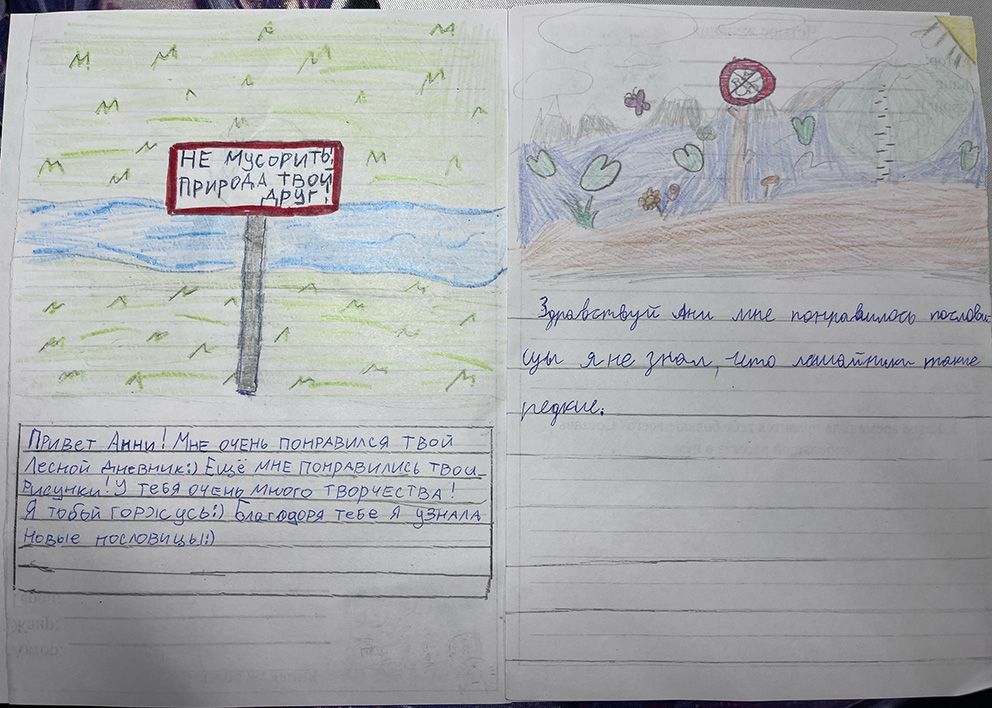 НЕ МУСОРИТЬ!
ПРИРОДА ТВОЙ
ДРУГ!
Привет Анни! Мне очень понравился твой
Лесной дневник:) Ещё мне понравились твои
рисунки! У тебя очень много творчества!
Я тобой горжусь:) Благодоря тебе я узнала
новые пословицы:)
Здравствуй Ани мне понравилось послови
цы я не знал, что лешайники такие
редкие.